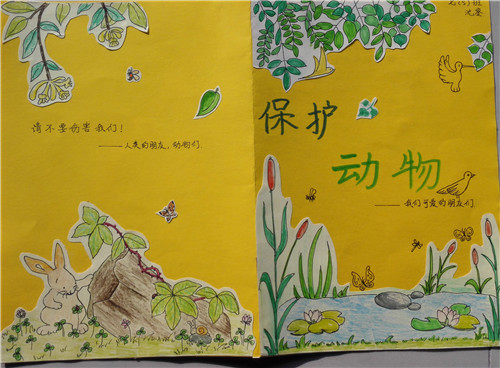 请不要伤害我们!
——人类的朋友,动物们
保护
动物
——我们可爱的朋友们